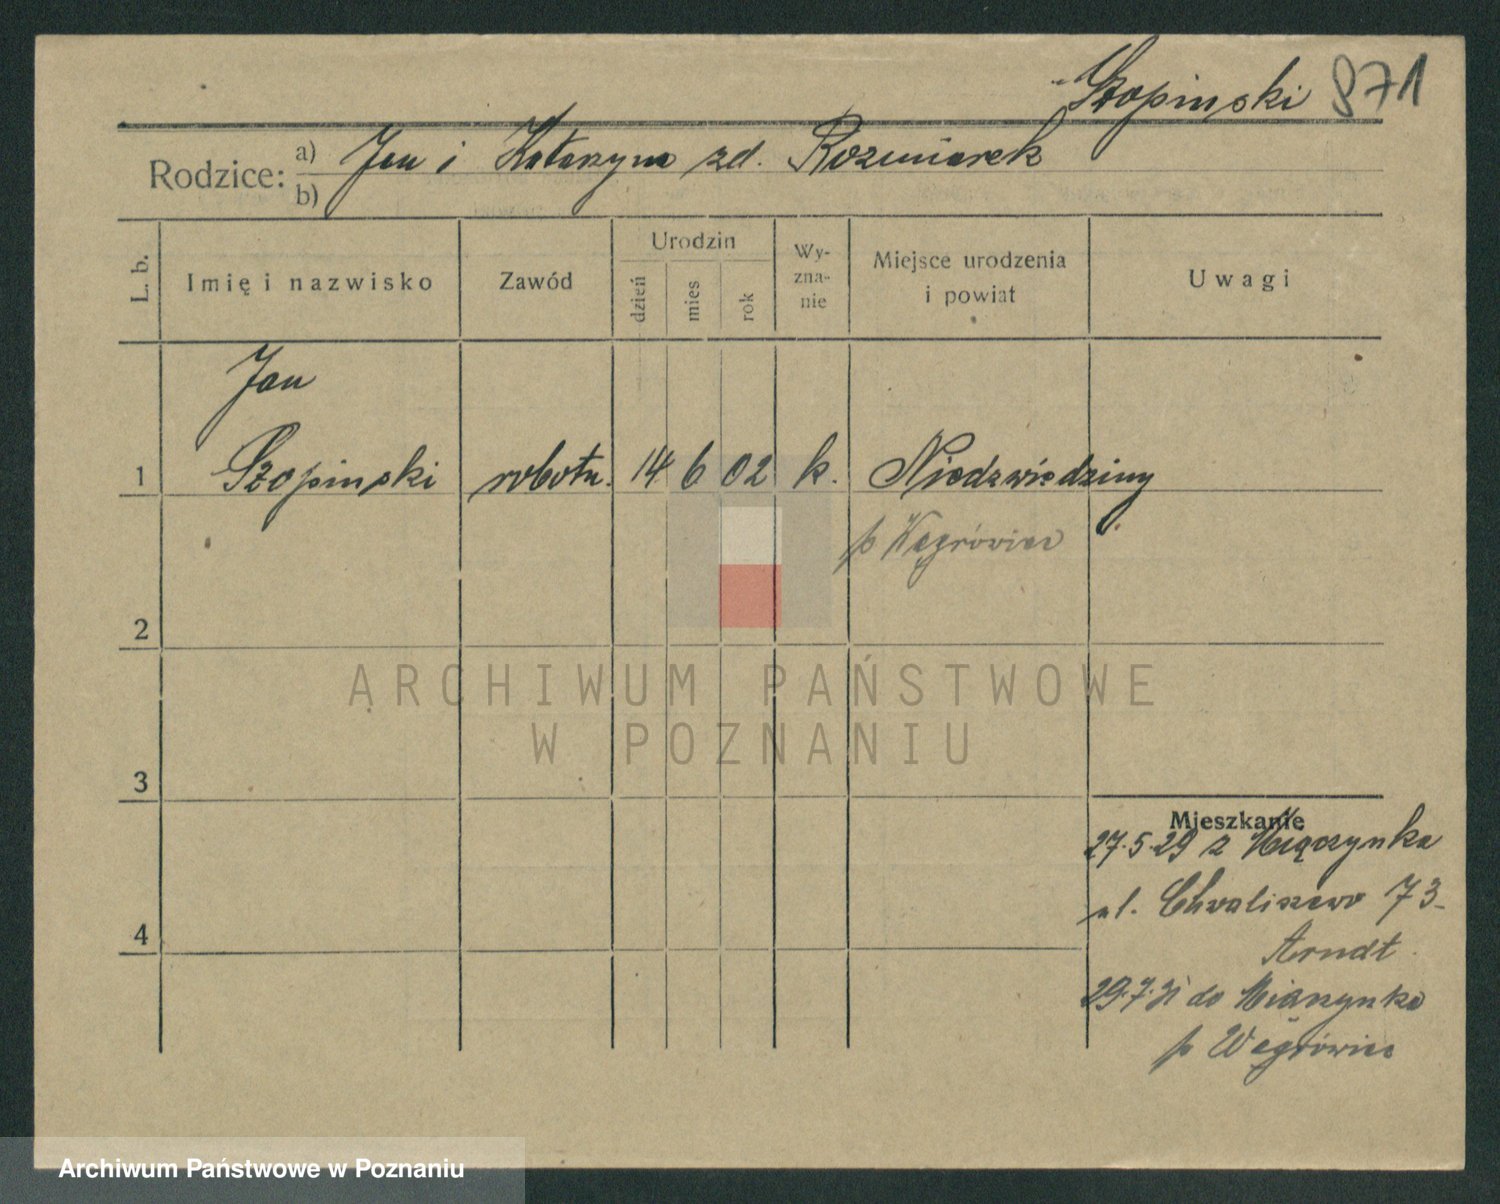 Szopinski 871
Rodzice: a) Jan i Katarzyna zd. Rozmiarek
b)
L. b. Imię i nazwisko Zawód Urodzin dzień mies rok Wy-zna-nie Miejsce urodzenia i powiat Uwagi
Jan
1 Szopinski robotn. 14 6 02 k. Niedzwiedziny
p Wągrówiec
2
ARCHIWUM PAŃSTWOWE
W POZNANIU
3
Mieszkanie
27.5.29 z Miączynka
ul. Chwaliszewo 73
4
Arndt
29.7.31 do Miączynka
p Wągrówiec
Archiwum Państwowe w Poznaniu